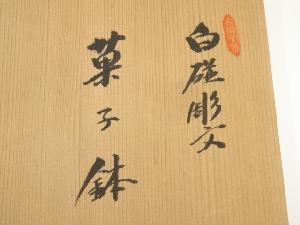 白磁彫文
菓子鉢